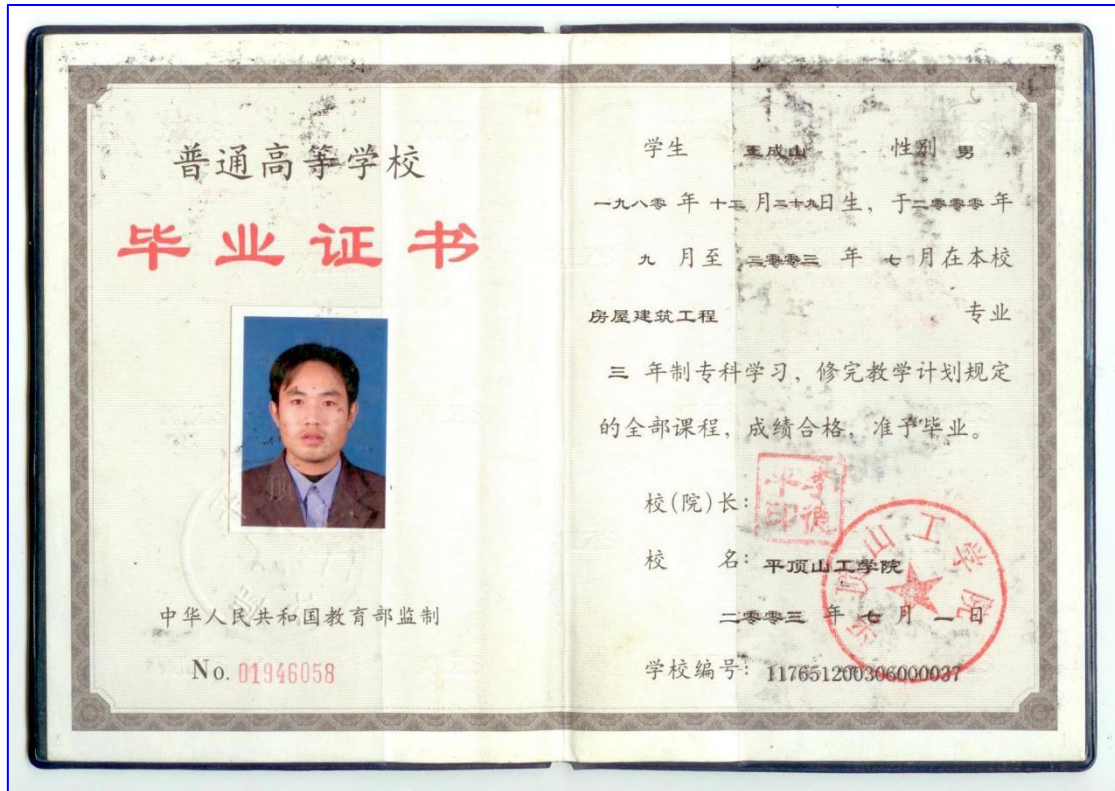 普通高等学校
毕业证书
中华人民共和国教育部监制
No. 01946058
学生 王成山 性别 男，
一九八零 年 十二 月二十九日生，于二零零零 年
九 月至 二零零三 年 七 月在本校
房屋建筑工程 专业
三 年制专科学习，修完教学计划规定
的全部课程，成绩合格，准予毕业。
校(院)长：
校 名：平顶山工学院
二零零三 年 七 月 一 日
学校编号：117651200306000037
平顶山工学院